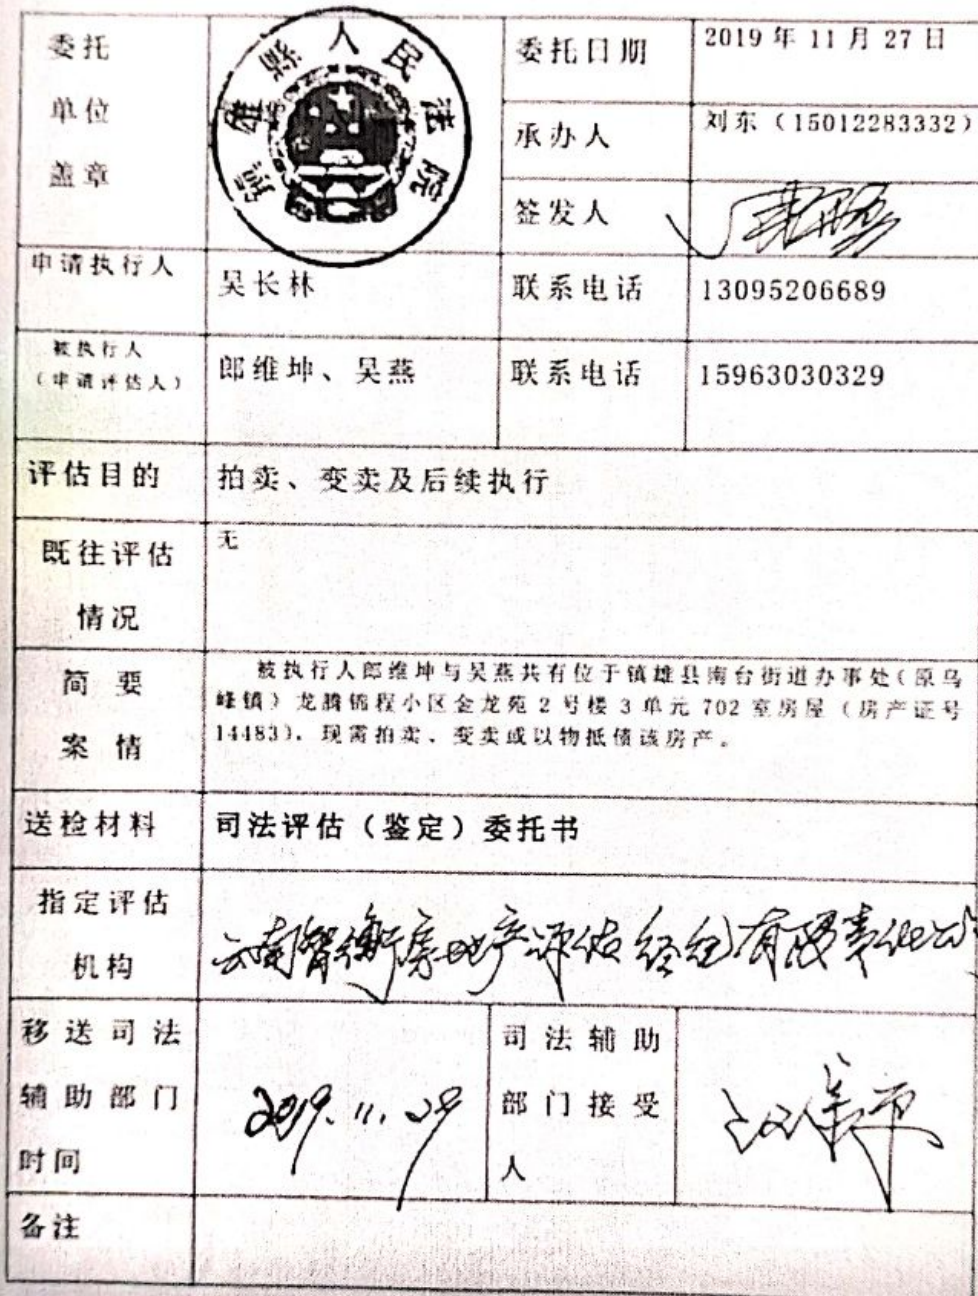 委托
单位
盖章
镇雄縣人民法院
委托日期
2019 年 11 月 27 日
承办人
刘东（15012283332）
签发人
申请执行人
吴长林
联系电话
13095206689
被执行人
（申请评估人）
郎维坤、吴燕
联系电话
15963030329
评估目的
拍卖、变卖及后续执行
既往评估
情况
无
简要
案情
被执行人郎维坤与吴燕共有位于镇雄县南台街道办事处（原乌
峰镇）龙腾锦程小区金龙苑 2 号楼 3 单元 702 室房屋（房产证号
14483），现需拍卖、变卖或以物抵债该房产。
送检材料
司法评估（鉴定）委托书
指定评估
机构
云南智衡房地产评估经纪有限责任公司
移送司法
辅助部门
时间
2019.11.29
司法辅助
部门接受
人
备注